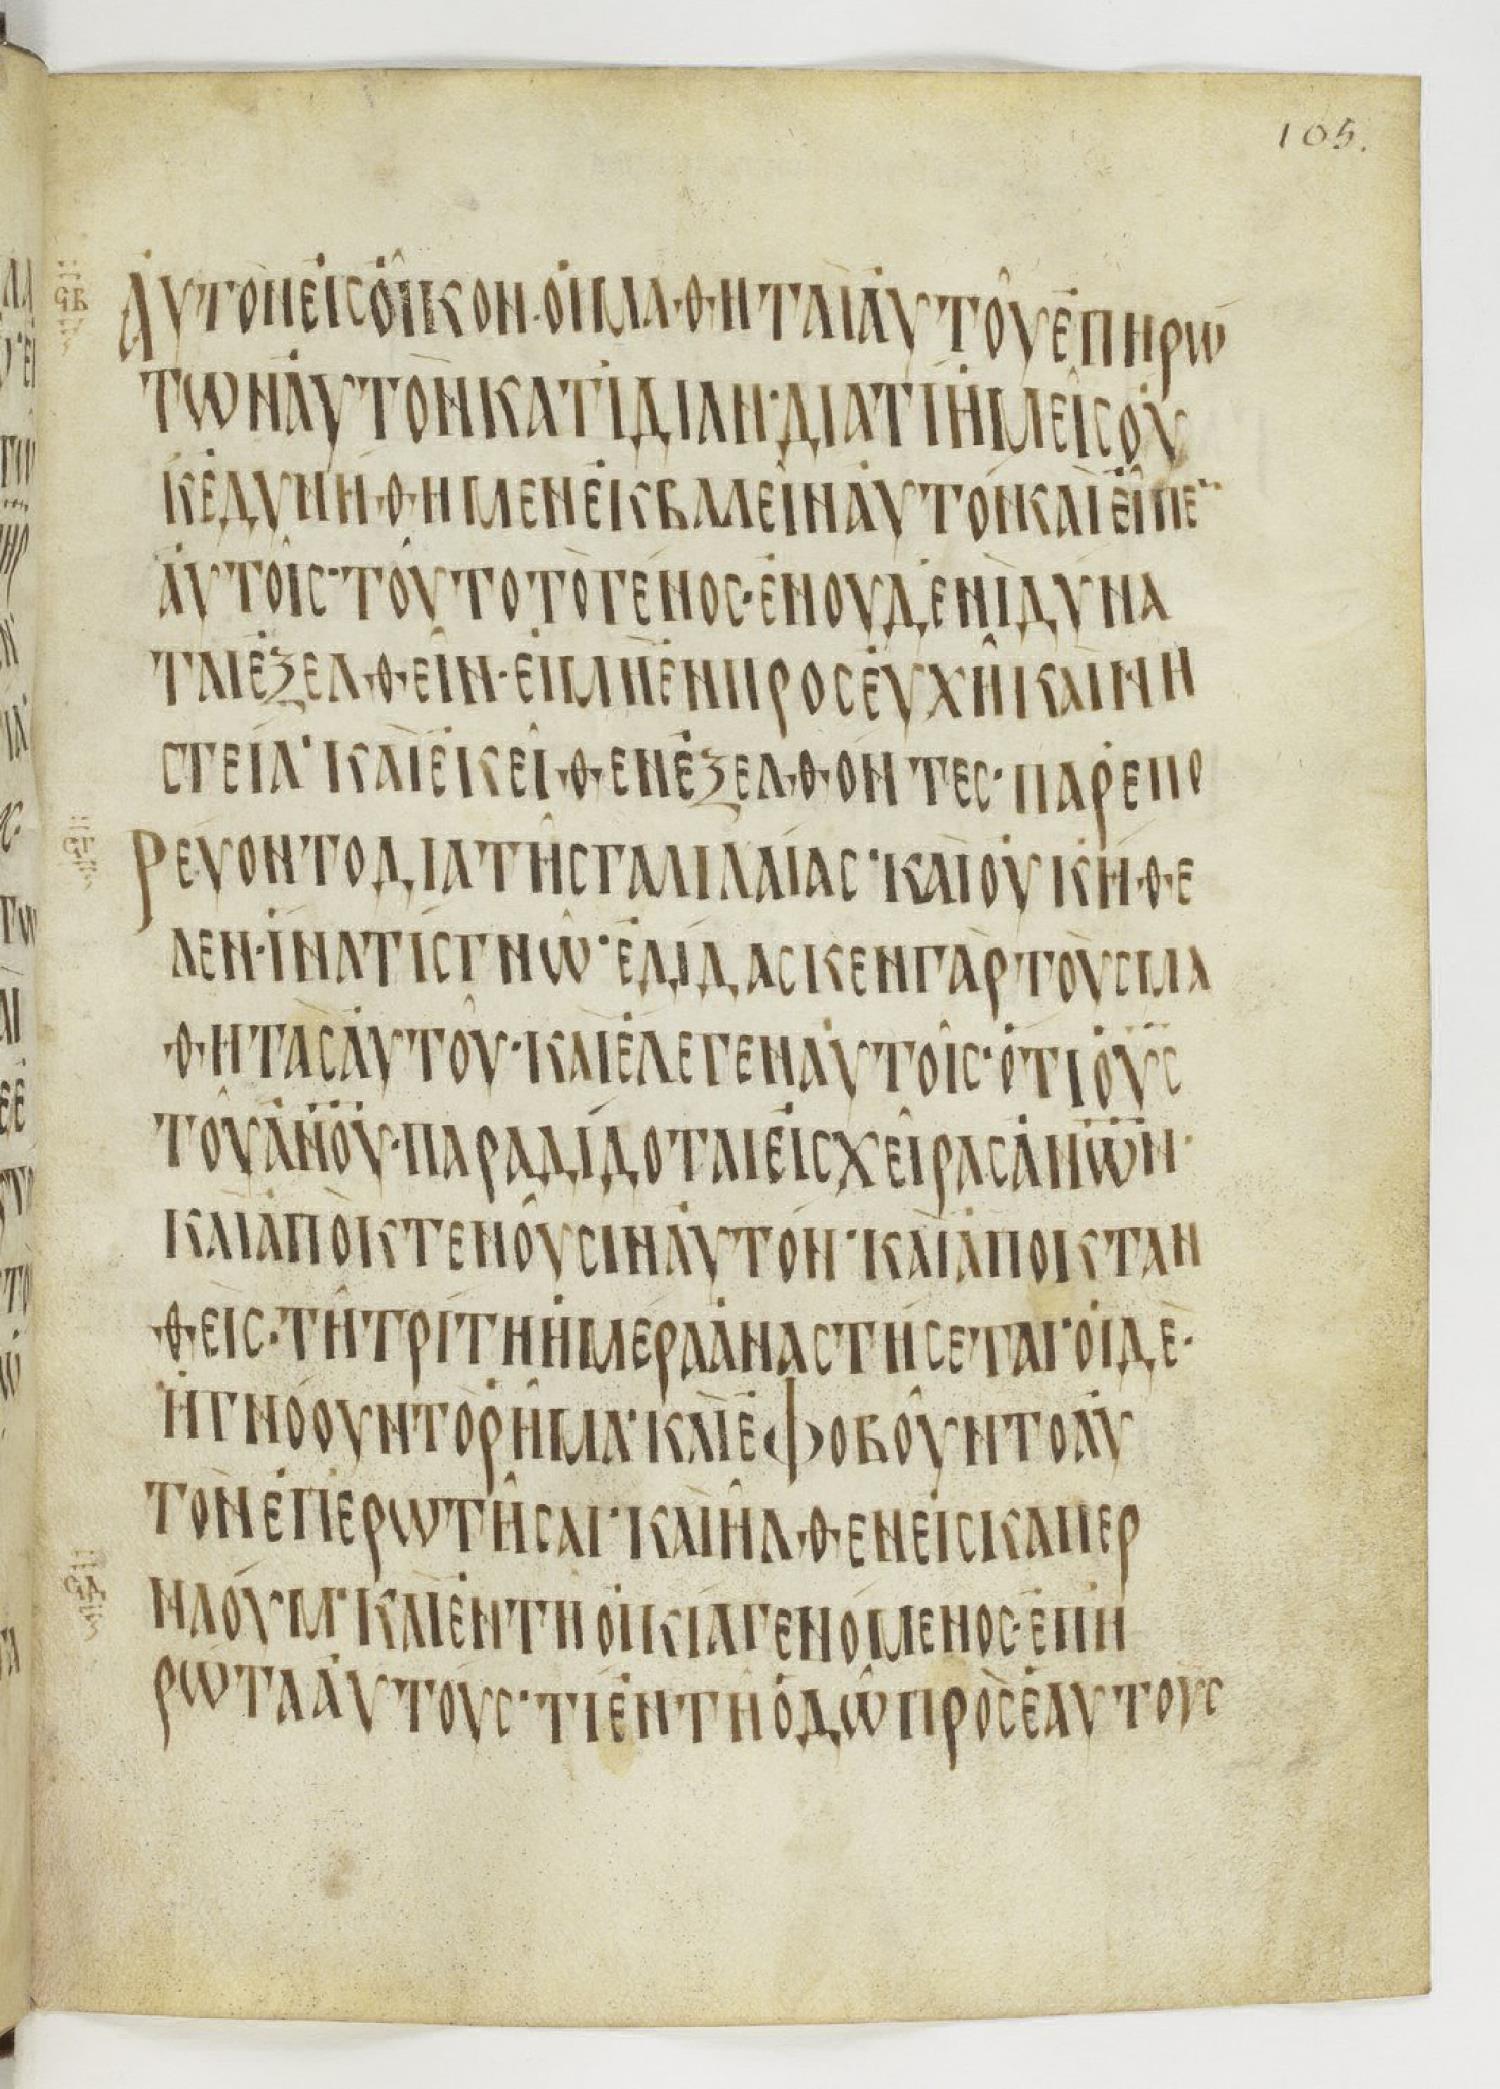 105.
ΑΥΤΟΝΕΙΣΟΙΚΟΝ·ΟΙΜΑΘΗΤΑΙΑΥΤΟΥΕΠΗΡΩ
ΤΩΝΑΥΤΟΝΚΑΤΙΔΙΑΝ·ΔΙΑΤΙΗΜΕΙΣΟΥ
ΚΕΔΥΝΗΘΗΜΕΝΕΚΒΑΛΕΙΝΑΥΤΟΚΑΙΕΙΠΕ
ΑΥΤΟΙΣ·ΤΟΥΤΟΤΟΓΕΝΟΣ·ΕΝΟΥΔΕΝΙΔΥΝΑ
ΤΑΙΕΞΕΛΘΕΙΝ·ΕΙΜΗΕΝΠΡΟΣΕΥΧΗΚΑΙΝΗ
ΣΤΕΙΑ·ΚΑΙΕΚΕΙΘΕΝΕΞΕΛΘΟΝΤΕΣ·ΠΑΡΕΠΟ
ΡΕΥΟΝΤΟΔΙΑΤΗΣΓΑΛΙΛΑΙΑΣ·ΚΑΙΟΥΚΗΘΕ
ΛΕΝ·ΙΝΑΤΙΣΓΝΩ·ΕΔΙΔΑΣΚΕΝΓΑΡΤΟΥΣΜΑ
ΘΗΤΑΣΑΥΤΟΥ·ΚΑΙΕΛΕΓΕΝΑΥΤΟΙΣ·ΟΤΙΟΥΣ
ΤΟΥΑΝΟΥ·ΠΑΡΑΔΙΔΟΤΑΙΕΙΣΧΕΙΡΑΣΑΝΩΝ·
ΚΑΙΑΠΟΚΤΕΝΟΥΣΙΝΑΥΤΟΝ·ΚΑΙΑΠΟΚΤΑΝ
ΘΕΙΣ·ΤΗΤΡΙΤΗΗΜΕΡΑΑΝΑΣΤΗΣΕΤΑΙ·ΟΙΔΕ·
ΗΓΝΟΟΥΝΤΟΡΗΜΑ·ΚΑΙΕΦΟΒΟΥΝΤΟΑΥ
ΤΟΝΕΠΕΡΩΤΗΣΑΙ·ΚΑΙΗΛΘΕΝΕΙΣΚΑΠΕΡ
ΝΑΟΥΜ·ΚΑΙΕΝΤΗΟΙΚΙΑΓΕΝΟΜΕΝΟΣ·ΕΠΗ
ΡΩΤΑΑΥΤΟΥΣ·ΤΙΕΝΤΗΟΔΩΠΡΟΣΕΑΥΤΟΥΣ